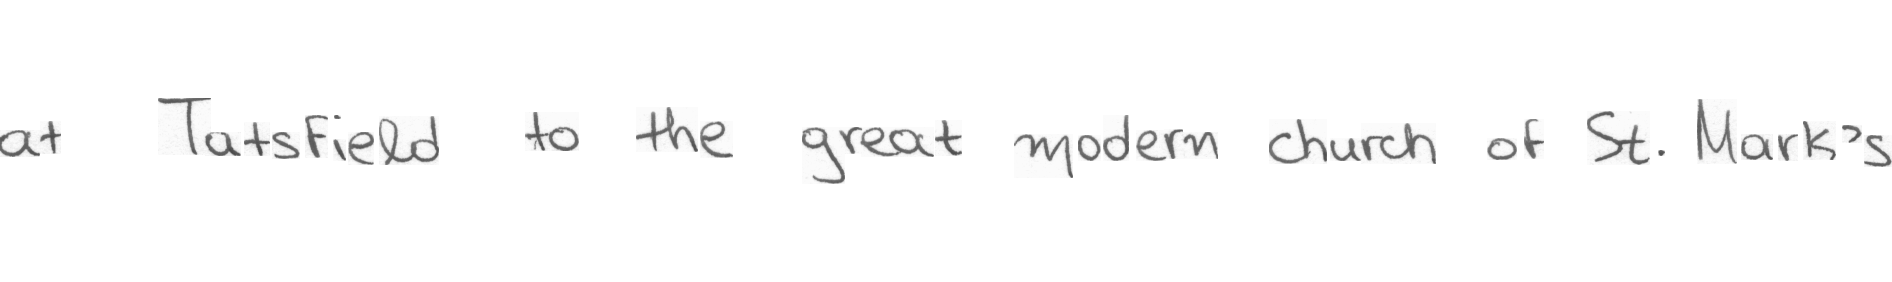 at Tatsfield to the great modern church of St. Mark's